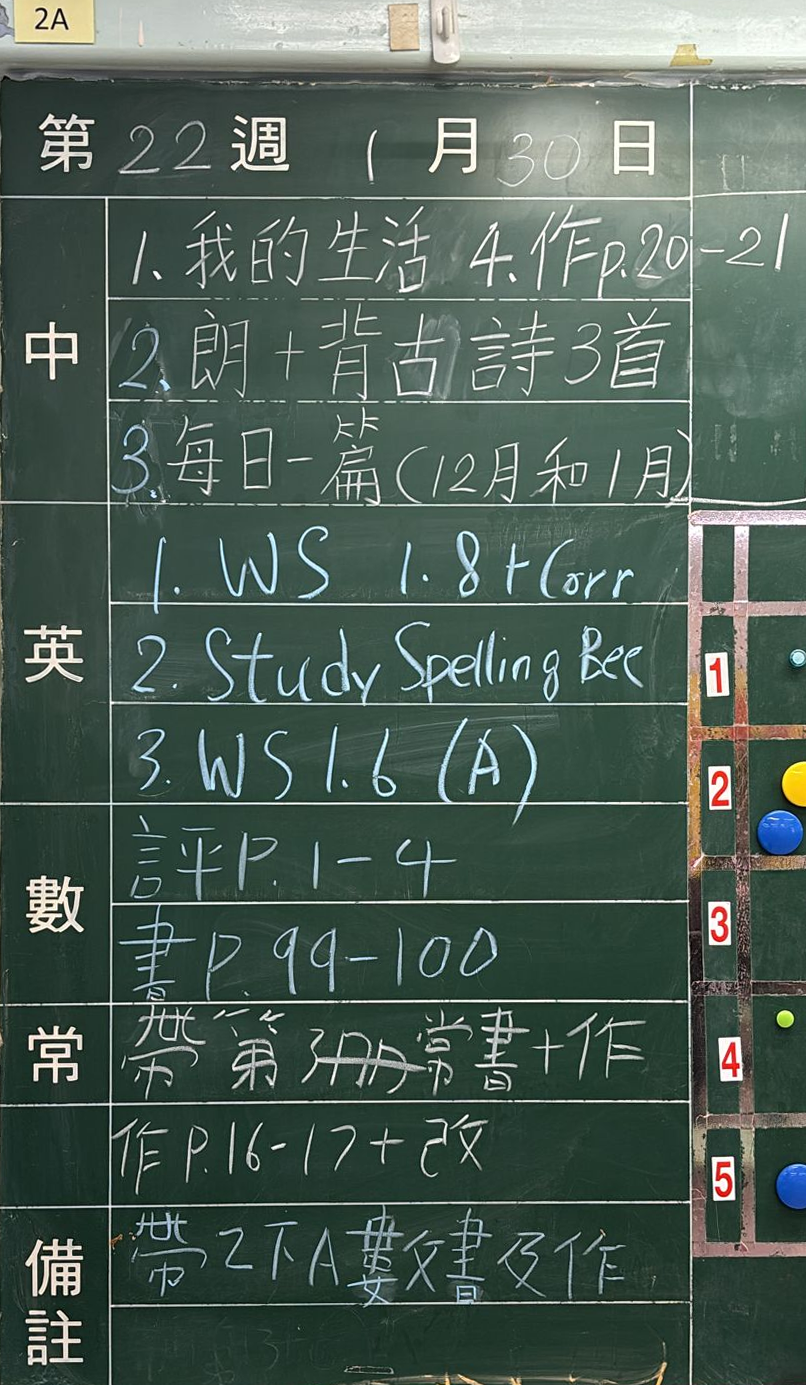 2A
第22週 1月30日
中
1. 我的生活 4. 作p.20-21
2. 朗+背古詩3首
3. 每日一篇(12月和1月)
英
1. WS 1.8+Corr
2. Study Spelling Bee
3. WS 1.6 (A)
數
評P.1-4
書P.99-100
常
帶第3冊常書+作
作P.16-17+改
備註
帶2下A數書及作
1
2
3
4
5